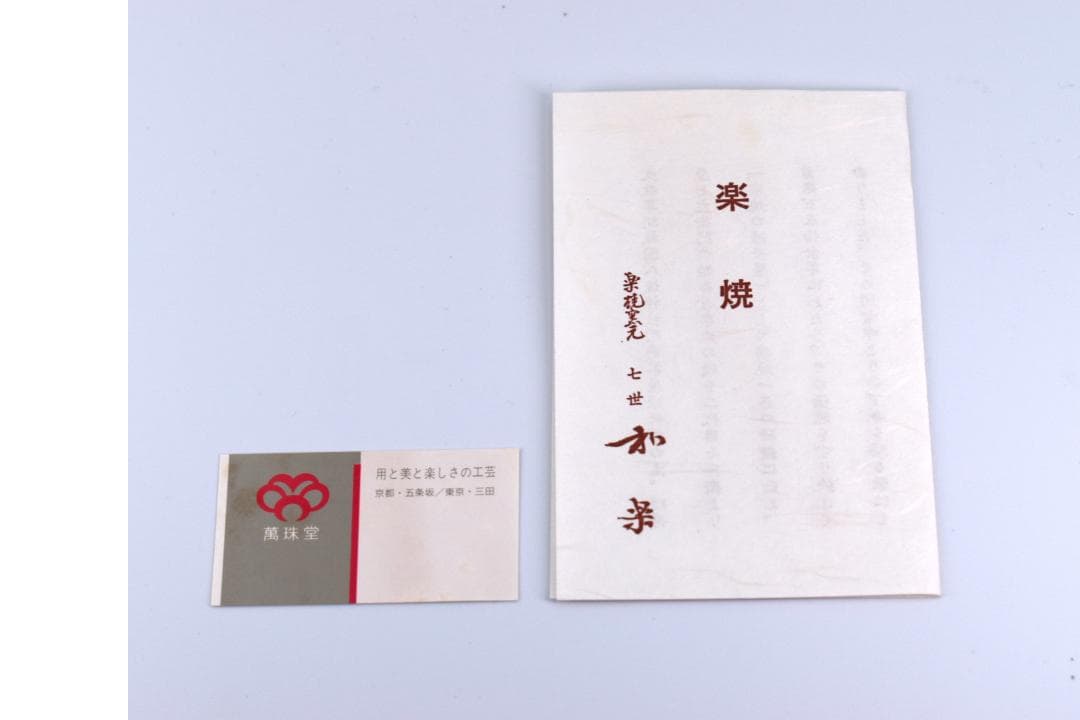 楽焼
楽焼窯元 七世 和楽
萬珠堂
用と美と楽しさの工芸
京都・五条坂／東京・三田